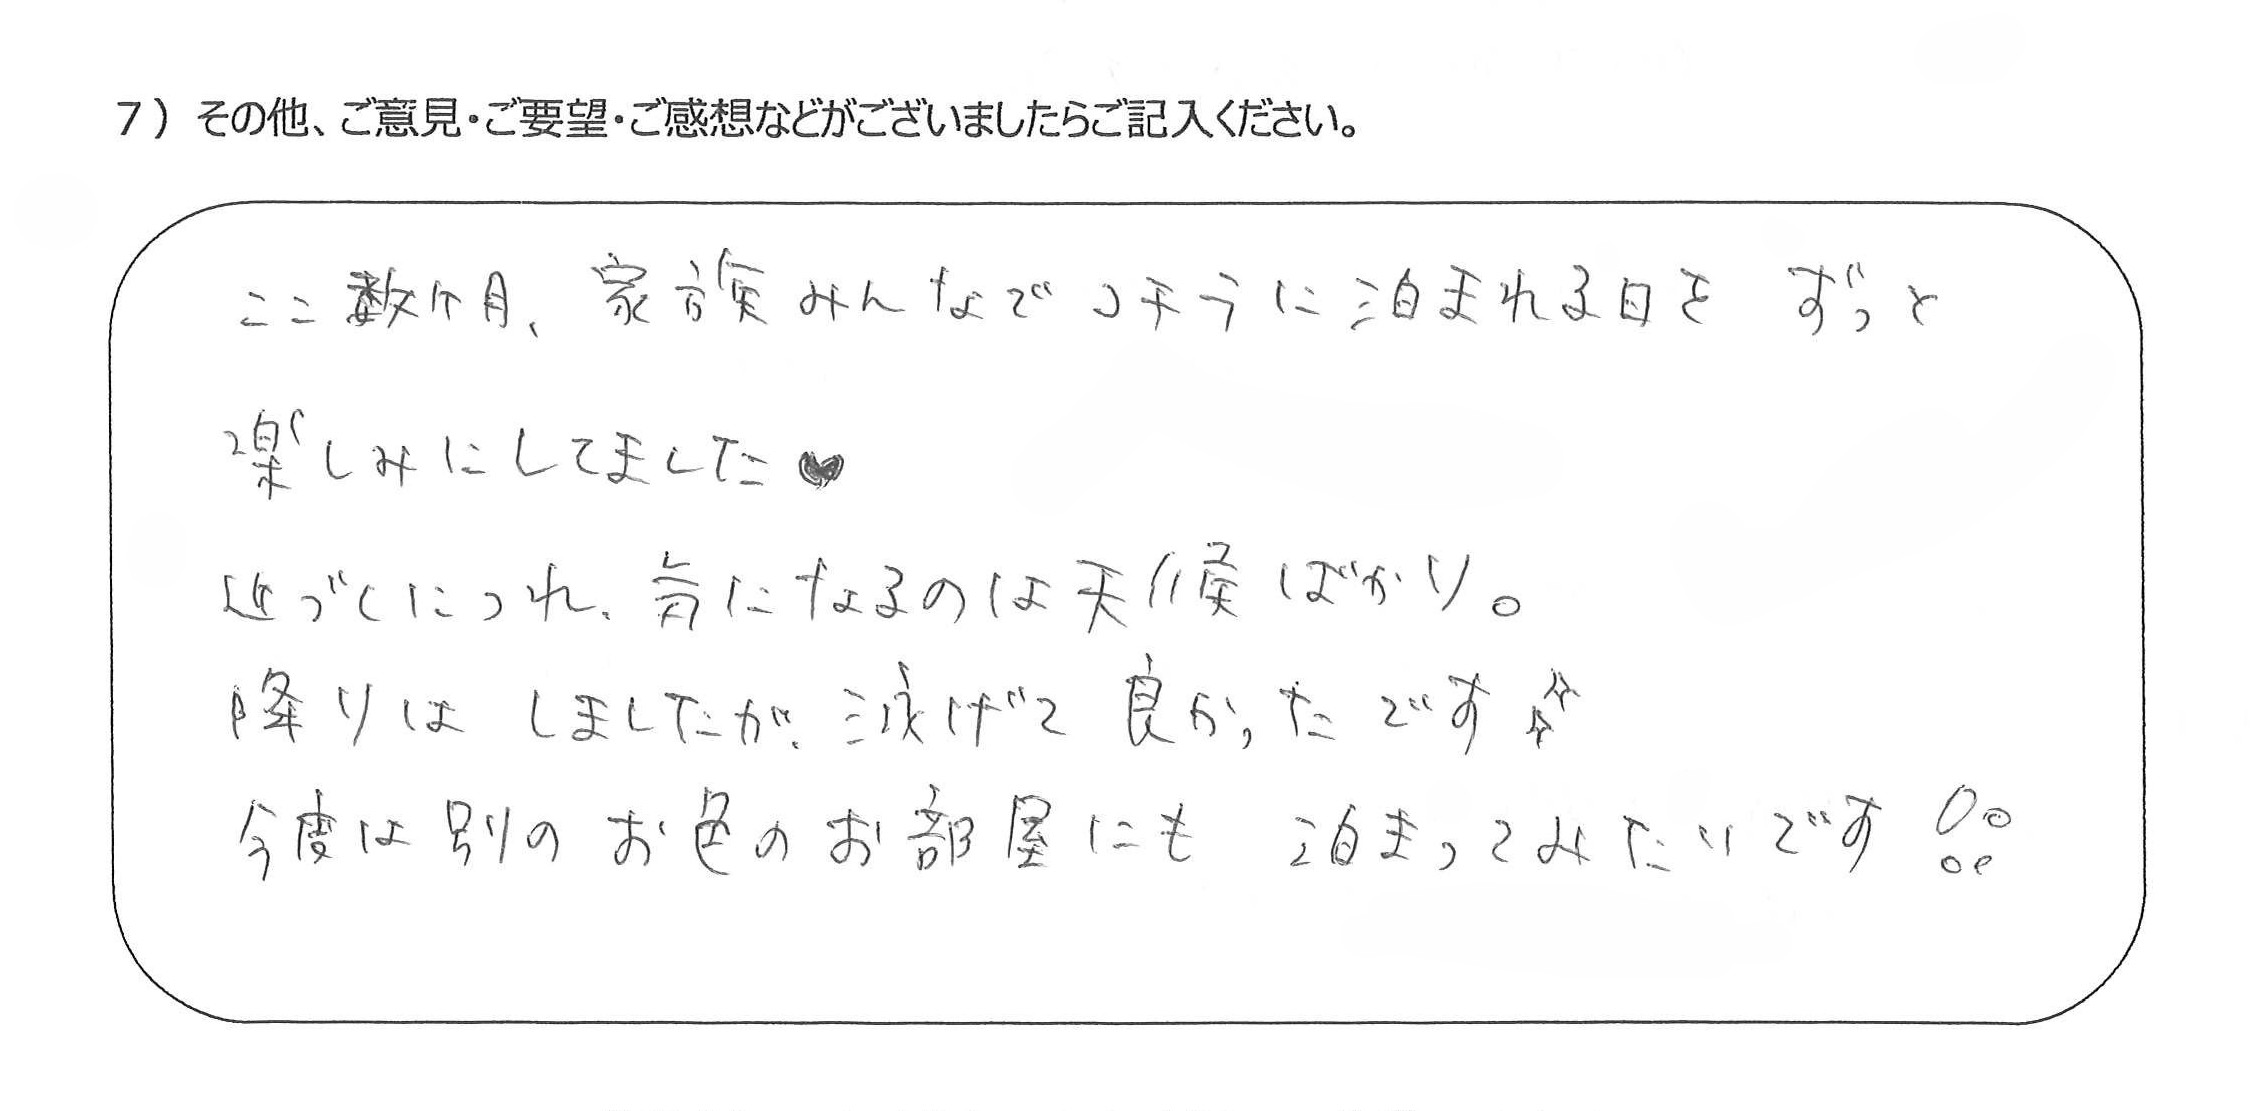 7）その他、ご意見・ご要望・ご感想などがございましたらご記入ください。
ここ数ヶ月、家族みんなでコチラに泊まれる日を ずっと
楽しみにしてました♥
近づくにつれ、気になるのは天候ばかり。
降りは しましたが、泳げて良かったです✨
今度は別のお色のお部屋にも 泊まってみたいです!!